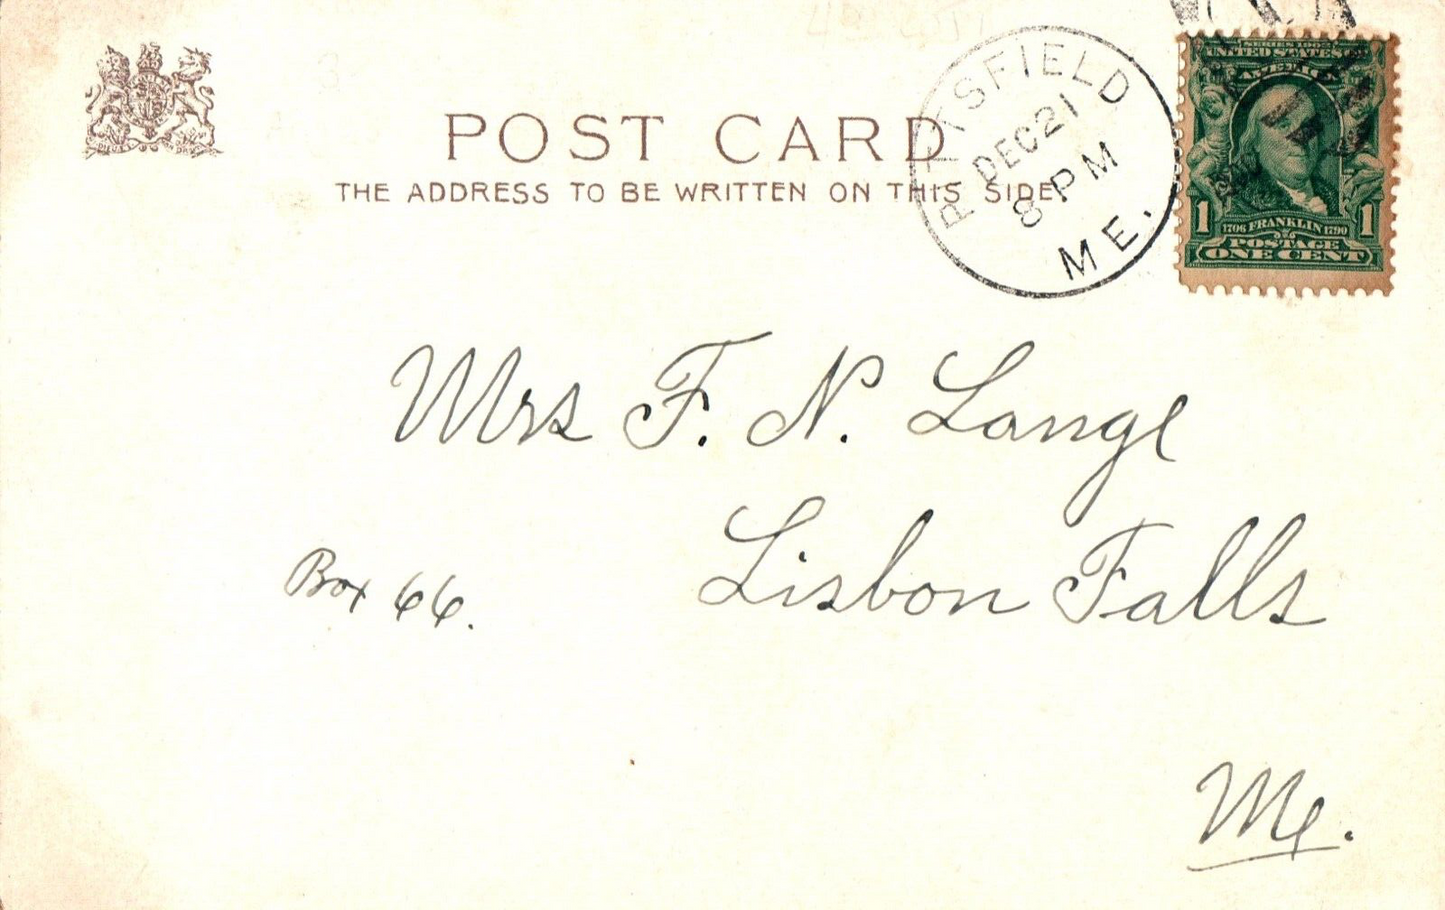 POST CARD
THE ADDRESS TO BE WRITTEN ON THIS SIDE
PITTSFIELD
DEC 21
8 PM
ME.
SERIES 1902
UNITED STATES OF
AMERICA
1 1706 FRANKLIN 1790 1
POSTAGE
ONE CENT
Mrs F. N. Lange
Lisbon Falls
Box 66.
Me.